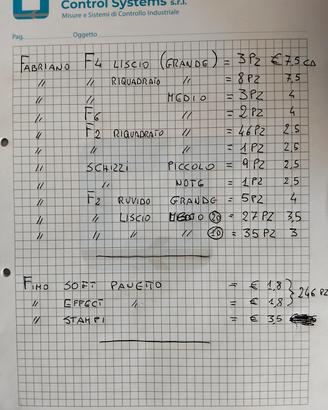 Control Systems s.r.l.
Misure e Sistemi di Controllo Industriale
Pag. Oggetto
FABRIANO F4 LISCIO (GRANDE) = 3PZ € 7,5 CD
" " RIQUADRATO " = 8PZ 7,5
" " " MEDIO = 3PZ 4
" F6 " = 2PZ 4
" F2 RIQUADRATO " = 46PZ 2,5
" " " = 1PZ 2,5
" SCHIZZI PICCOLO = 9PZ 2,5
" " NOTE = 1PZ 2,5
" F2 RUVIDO GRANDE = 5PZ 4
" " LISCIO 20 = 27PZ 3,5
" " " " 10 = 35PZ 3
FIMO SOFT PANETTO = € 1,8
" EFFECT " = € 1,8 } 246 PZ
" STAMPI = € 3,5